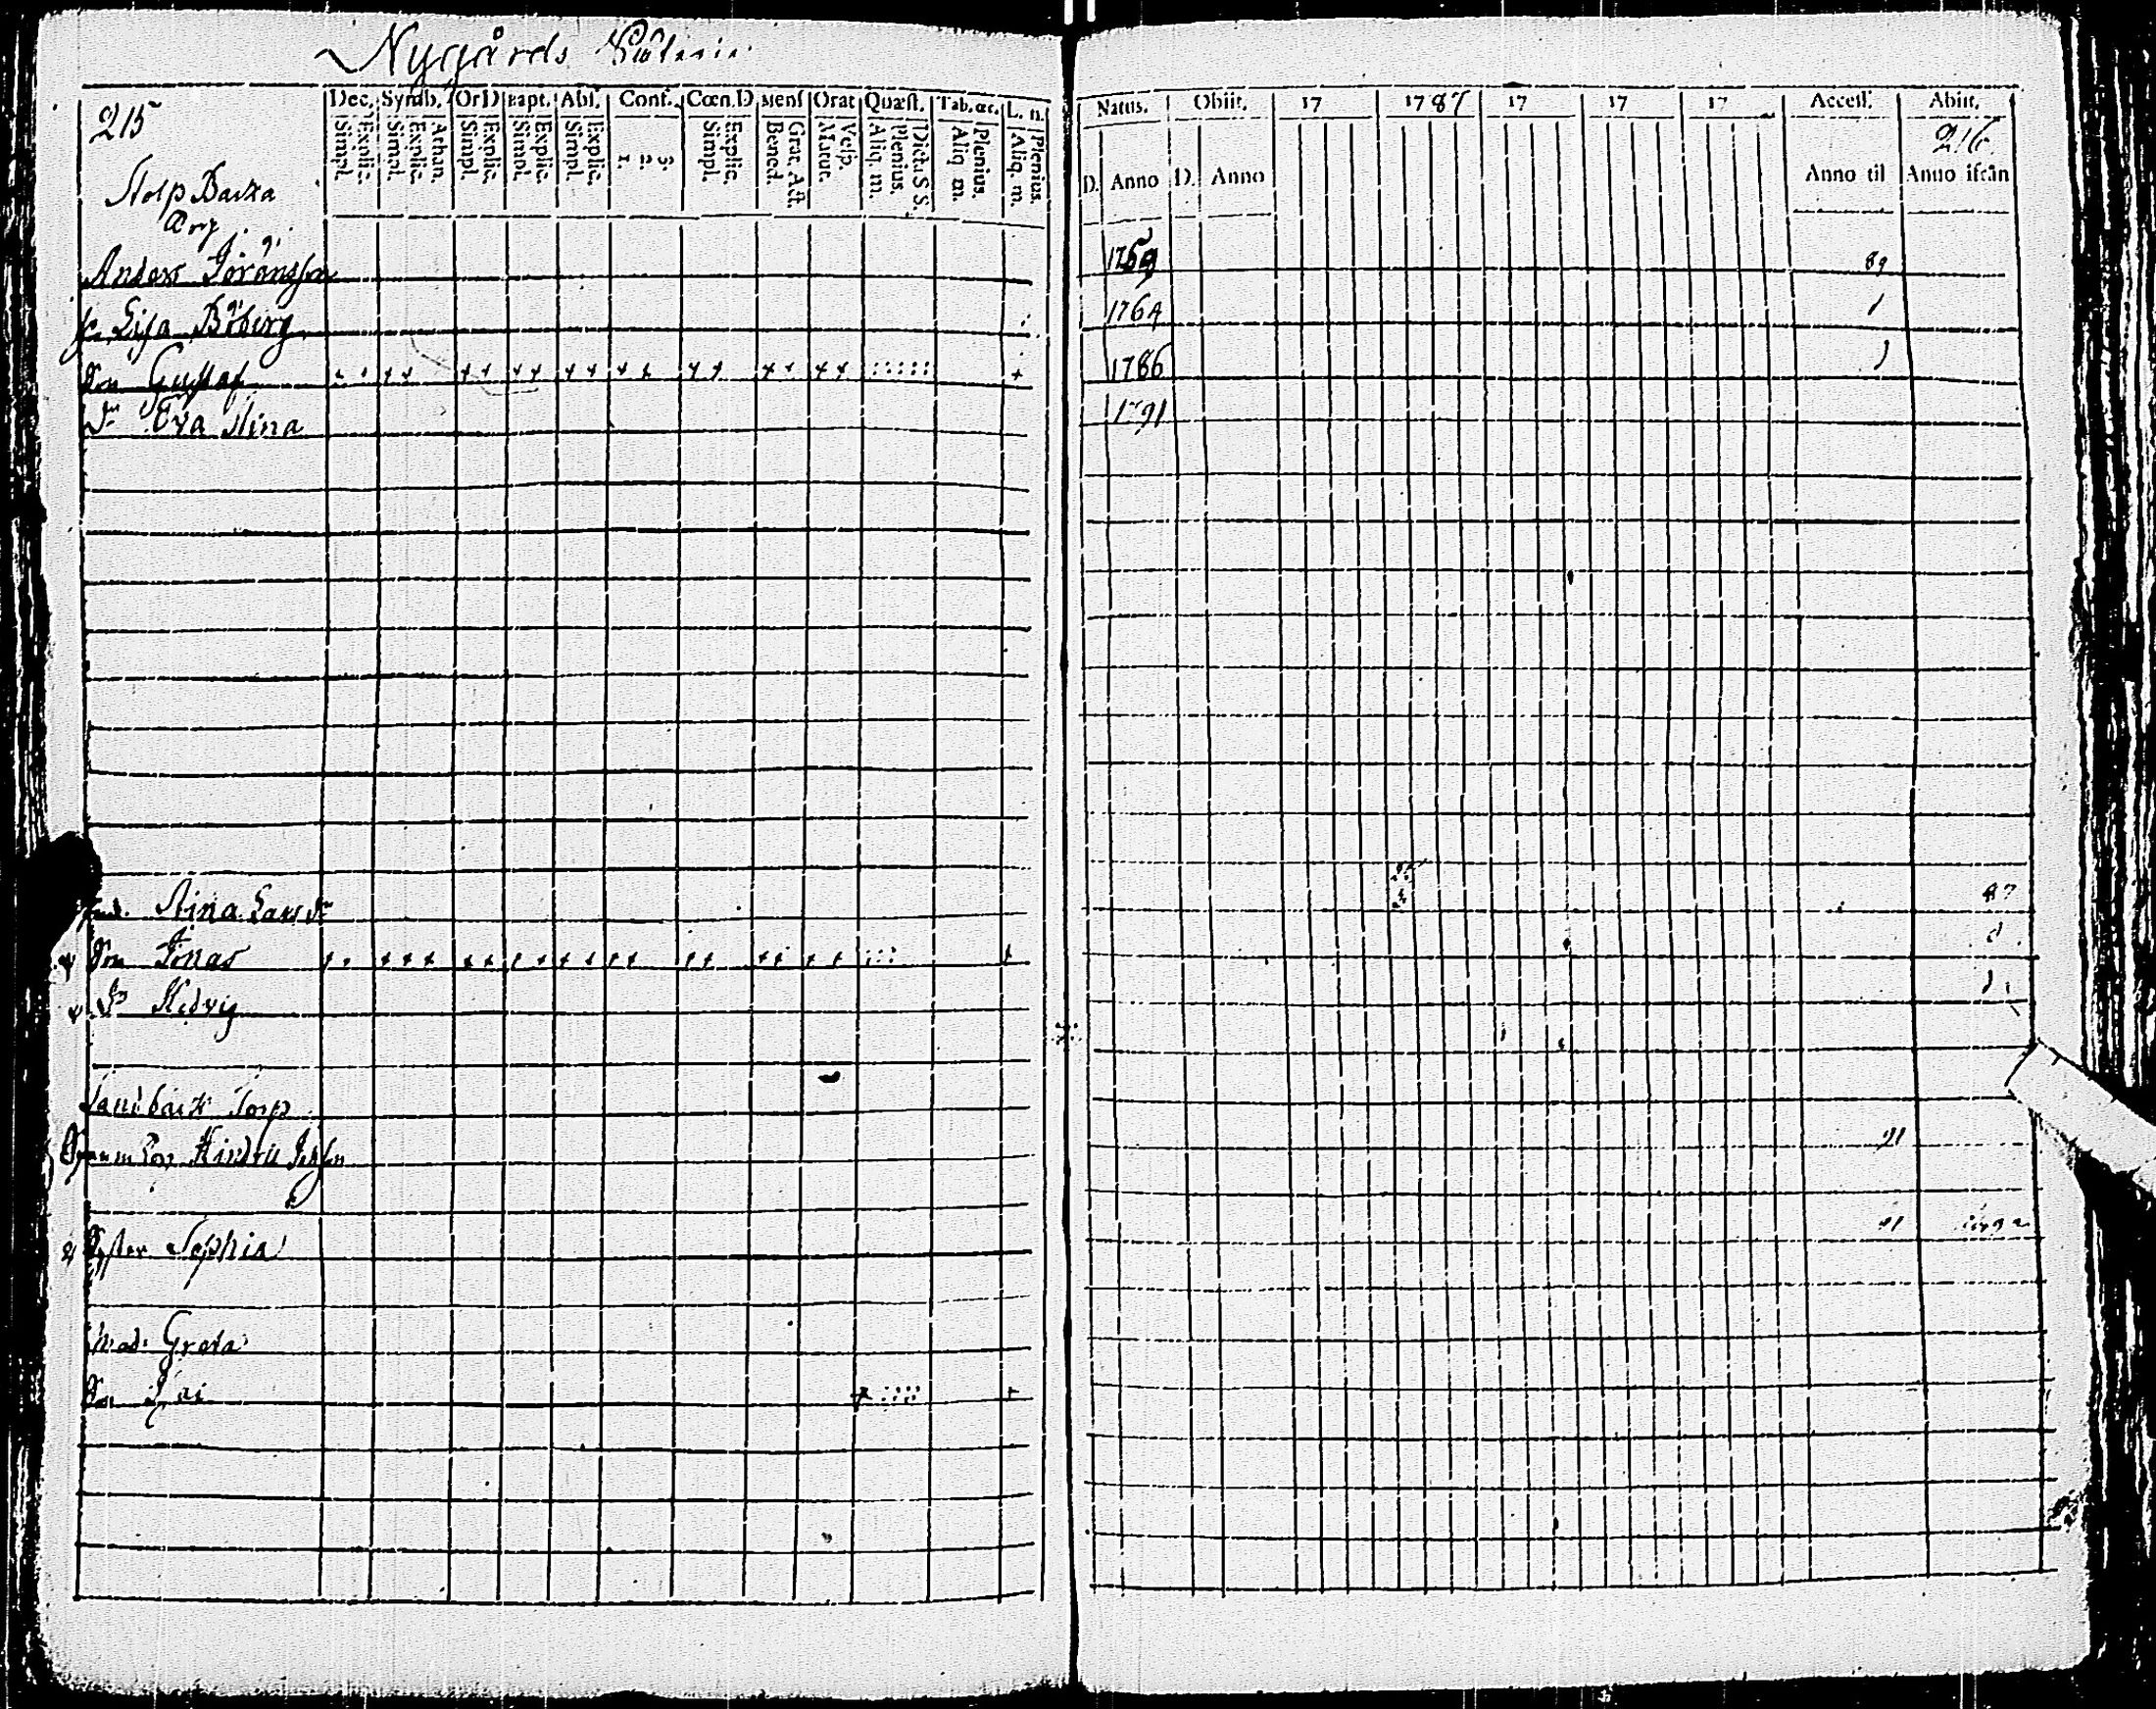 Nygårds
215
Dec. Symb. Or D Bapt. Abs. Conf. Cœn. D Mens Orat Quæst. Tab. œc. L. n.
Simpl. Explic. Simpl. Explic. Athan. Simpl. Explic. Simpl. Explic. Simpl. Explic. 1. 2. 3. Simpl. Explic. Bened. Grat. Act. Matut. Vesp. Aliq. m. Plenius. Dicta S S. Aliq m. Plenius. Aliq. m. Plenius.
Natus. Obiit. 17 1787 17 17 17 Access. Abiit.
216
D. Anno D. Anno Anno til Anno ifrån
Stolp Backa
Torp
Anders Göransson 1769 89
Lisa Böberg 1764
Son Gustaf 1786
Dr Eva Stina 1791
Enk. Stina Lars dr 87
Son Jonas
Dr Hedvig
Sandbäck Torp
Hindric 91
Syster Sophia 91
Mad. Greta
Son